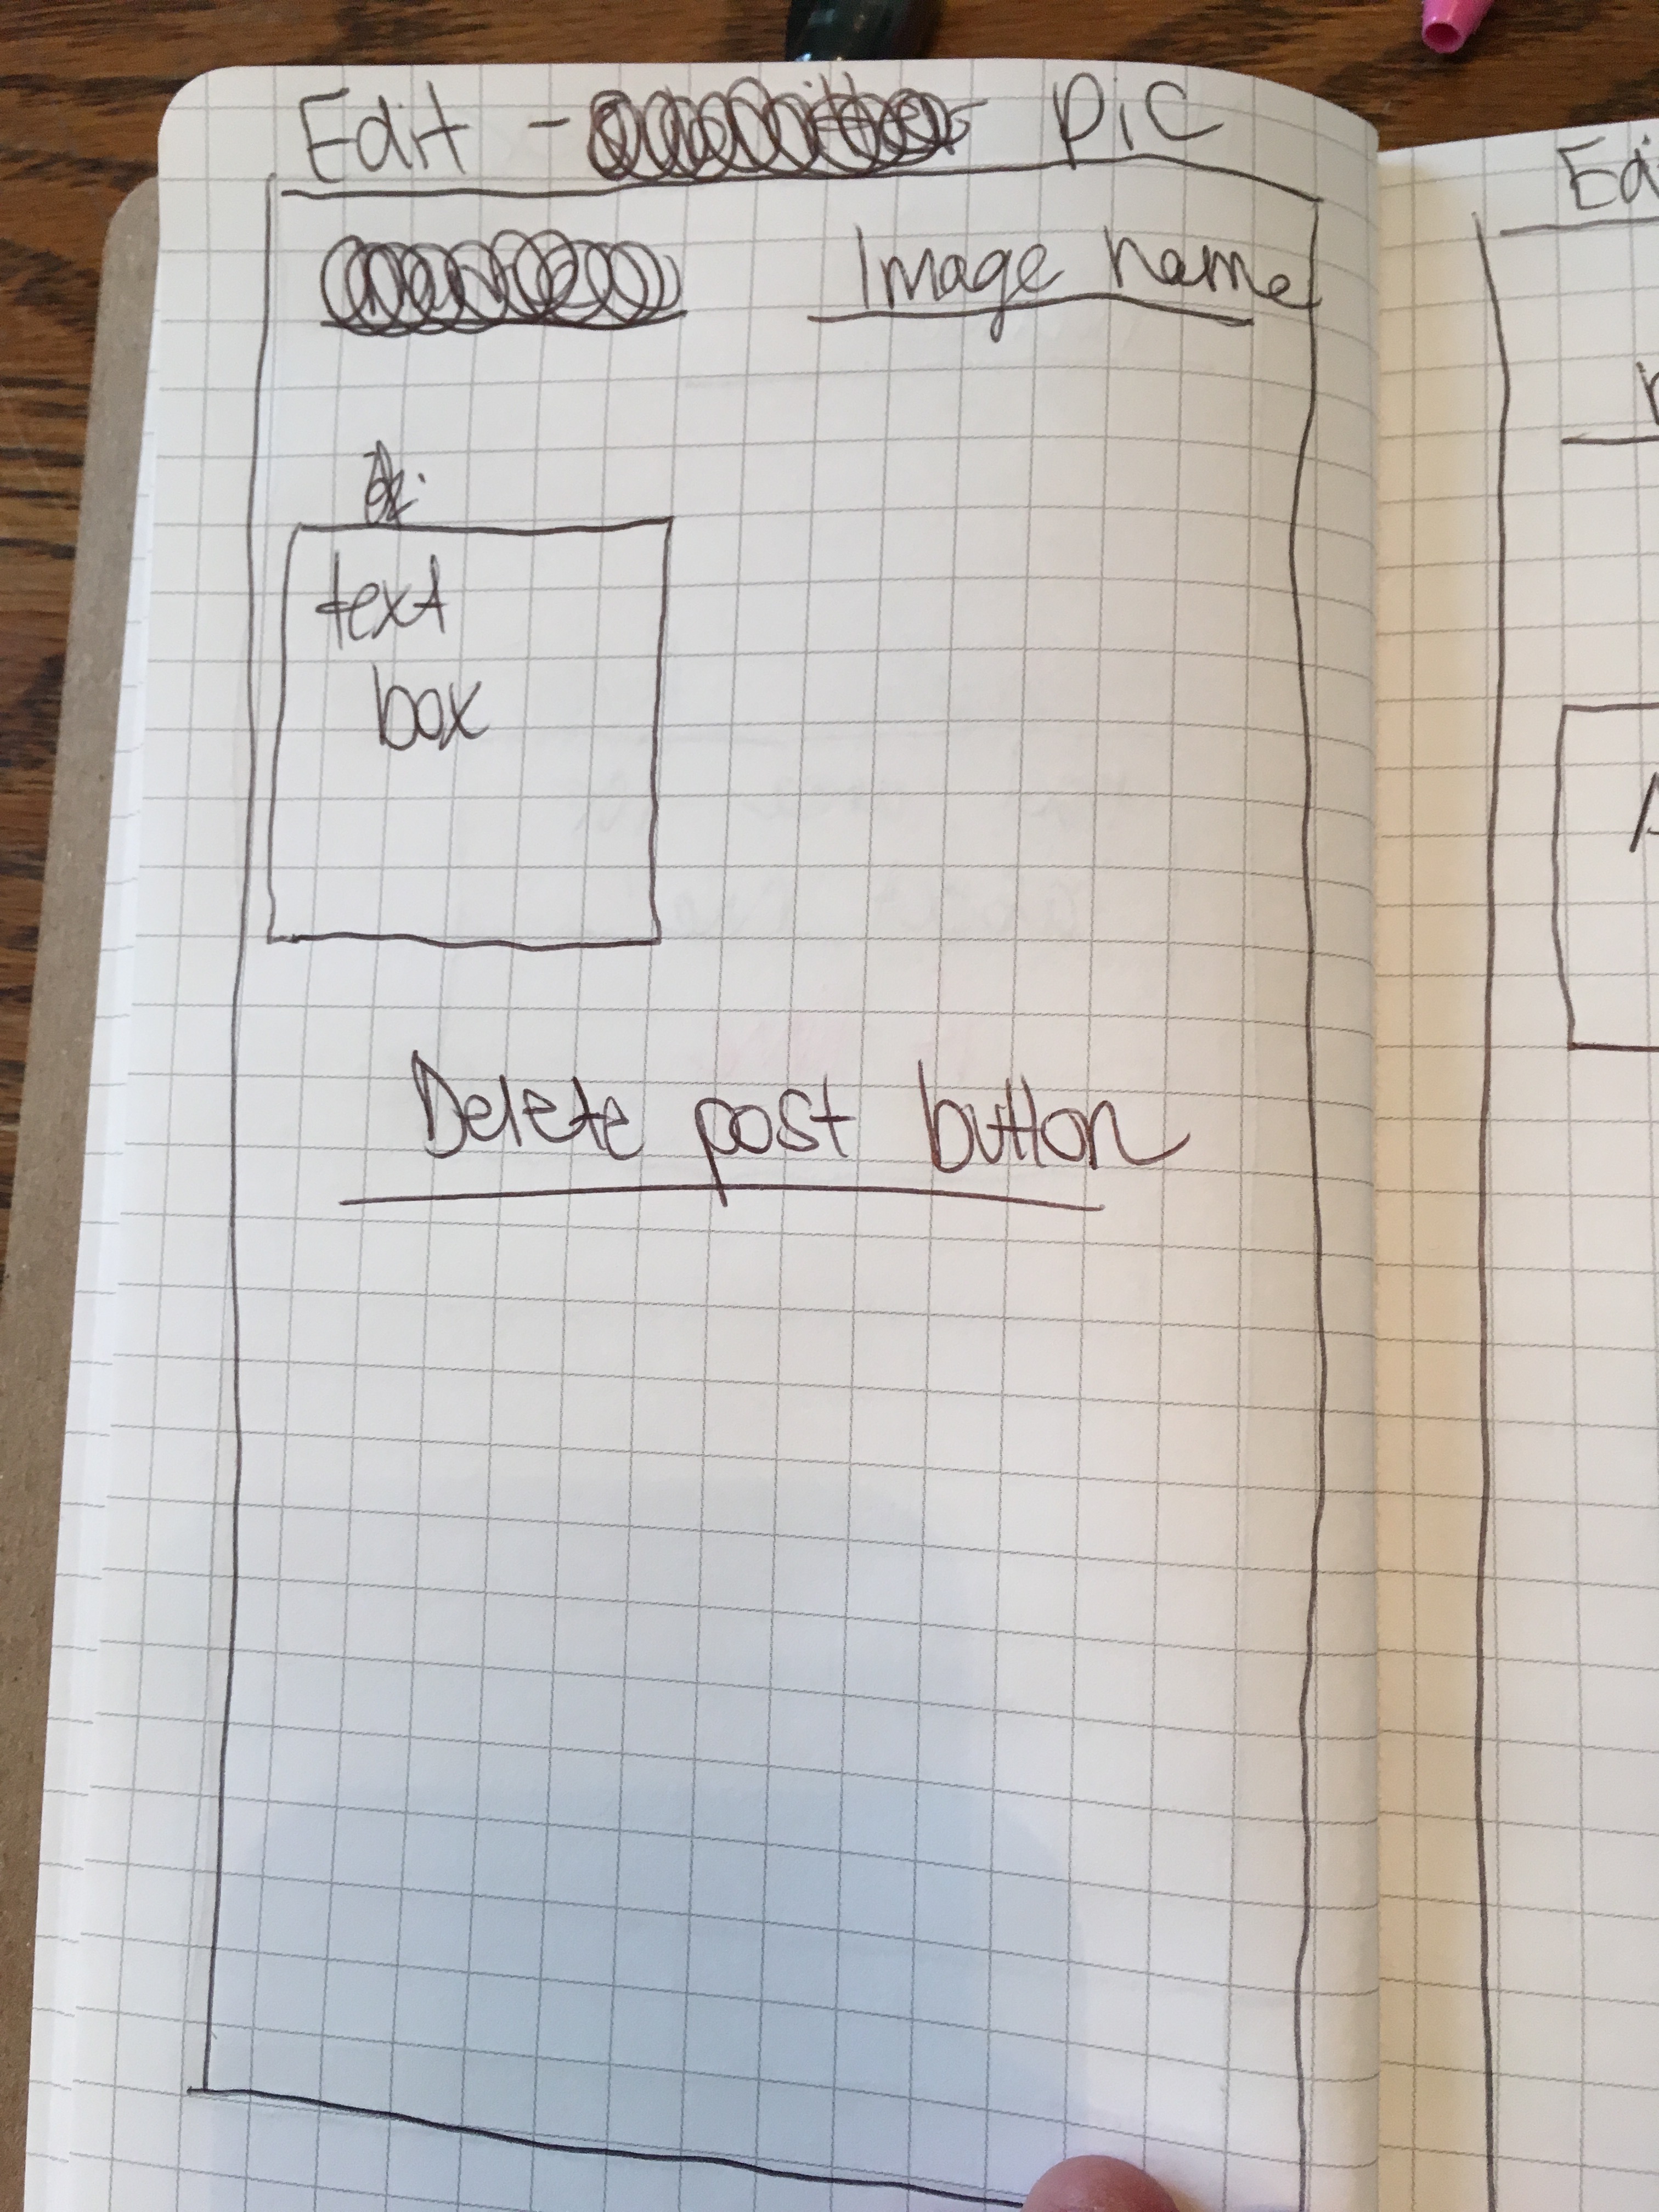 Edit - pic
Image name
text
box
Delete post button